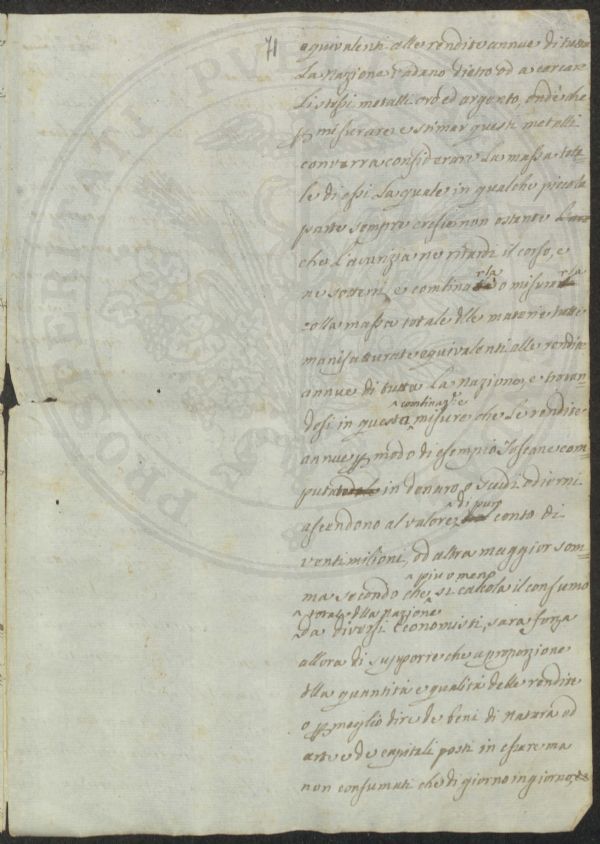 71
equivalenti alle rendite annue di tutta
la nazione vadano dietro od a cercar
li stessi metalli oro ed argento, onde che
p misurare e stimar questi metelli
converrà considerare la massa tota=
le di essi la quale in qualche piccola
parte sempre cresce non ostante
che l'avarizia ne ritardi il corso, e
ne sotterri, e combinarla o misurarla
colla massa totale dlle materie tutte
manifatturate equivalenti alle rendite
annue di tutta la nazione, e trovan
dosi in questa combinaz.e misure che le rendite
annue p modo di esempio Toscane com=
putate in denaro, o scudi odierni
ascendono al valore di puro conto di
venti milioni, od altra maggior som=
ma secondo che più o meno si calcola il consumo
totale dlla nazione
da diversi Economisti, sarà forza
allora di supporre che a proporzione
dlla quantità e qualità delle rendite
o p meglio dire de beni di natura od
arte e de capitali posti in essere ma
non consumati che di giorno in giorno,
PROSPERITATI PUBLICAE